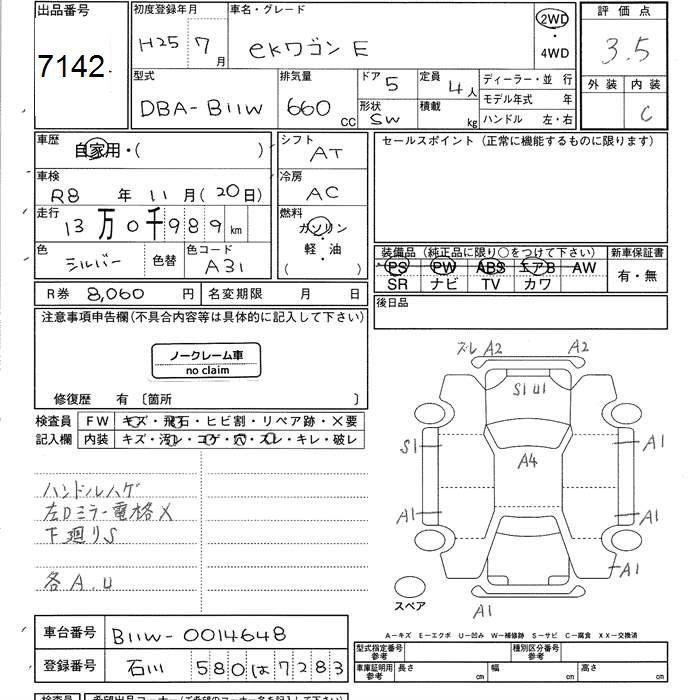 出品番号
7142
初度登録年月
H25 7月
車名・グレード
ekワゴン E
2WD
・
4WD
評価点
3.5
外装 内装
C
型式
DBA-B11W
排気量
660 CC
ドア 5
形状 SW
定員 4人
積載 kg
ディーラー・並行
モデル年式 年
ハンドル 左・右
車歴
自家用・( )
シフト
AT
セールスポイント(正常に機能するものに限ります)
車検
R8年11月(20日)
冷房
AC
走行
13万0千989km
燃料
ガソリン
・
軽・油
( )
色
シルバー
色替
色コード
A31
装備品(純正品に限り○をつけて下さい)
新車保証書
PS PW ABS エアB AW
SR ナビ TV カワ
有・無
R券 8,060円
名変期限 月 日
後日品
注意事項申告欄(不具合内容等は具体的に記入して下さい)
ノークレーム車
no claim
修復歴 有〔箇所 〕
検査員
記入欄
FW キズ・飛石・ヒビ割・リペア跡・×要
内装 キズ・汚レ・コゲ・穴・スレ・キレ・破レ
ハンドルハゲ
左Dミラー電格X
下廻りS
各A.U
ズレ A2 A2
S1 U1
S1 A1
A4
A1 A1
A1
A1
スペア
A－キズ E－エクボ U－凹み W－補修跡 S－サビ C－腐食 XX－交換済
車台番号
B11W-0014648
登録番号
石川 580 は 7283
型式指定番号
参考
種別区分番号
参考
車庫証明用
参考
長さ cm
幅 cm
高さ cm
検査員
希望出品コーナー(ご希望のコーナー名を記入下さい)